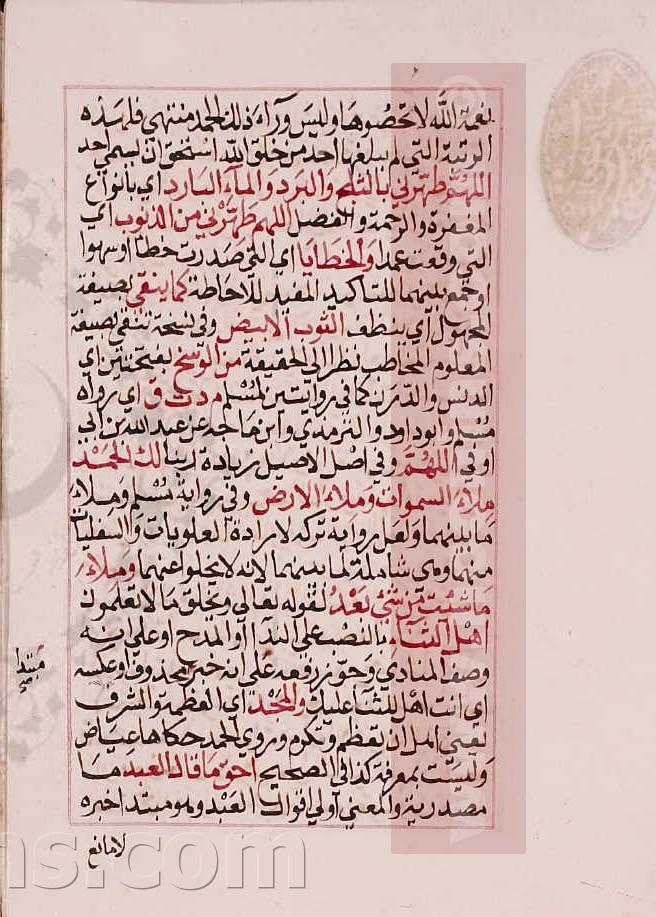 نعمة الله لا تحصوها وليس وراء ذلك الحمد منتهي فلهذه
الرتبة التي لم يبلغها احد من خلق الله استحق ان يسمي احمد
اللهم طهرني بالثلج والبرد والماء البارد اي بانواع
المغفرة والرحمة والفضل اللهم طهرني من الذنوب اي
التي وقعت عمدا والخطايا اي التي صدرت خطأ او سهوا
او جمع بينهما للتاكيد المفيد للاحاطة كما ينقي بصيغة
المجهول اي ينظف الثوب الابيض وفي نسخة تنقي بصيغة
المعلوم المخاطب نظرا الي الحقيقة من الوسخ بفتحتين اي
الدنس والدرن كما في روايتين لمسلم م د ت ق اي رواه
مسلم وابو داود والترمذي وابن ماجه عن عبد الله بن ابي
اوفي اللهم وفي اصل الاصيل زيادة ربنا لك الحمد
ملاء السموات وملاء الارض وفي رواية مسلم وملاء
ما بينهما ولعل رواية تركه لارادة العلويات والسفليات
منهما وهي شاملة لما بينهما لانه لا يخلوا عنهما وملاء
ما شئت من شئ بعد لقوله تعالي ويخلق ما لا تعلمون
اهل الثناء بالنصب علي الندا او المدح او علي انه
وصف المنادي وجوز رفعه علي انه خبر محذوف او عكسه
مبتدا
اي انت اهل للثنا عليك والمجد اي العظمة والشرف
يعني اهل ان تعظم وتكرم وروي الحمد حكاها عياض
وليست بمعرفة كذا في الصحيح احق ما قال العبد ما
مصدرية والمعني اولي اقوال العبد وهو مبتدا خبره
لا مانع
ns.com